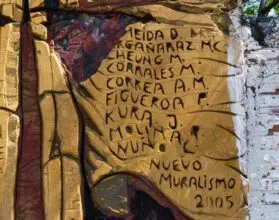 MEIDA D.
ARGAÑARAZ MC.
CHEUNG M.
CORRALES M.
CORREA A.M
FIGUEROA F.
KURA J.
MOLINA
NUÑO C.
NUEVO
MURALISMO
2005